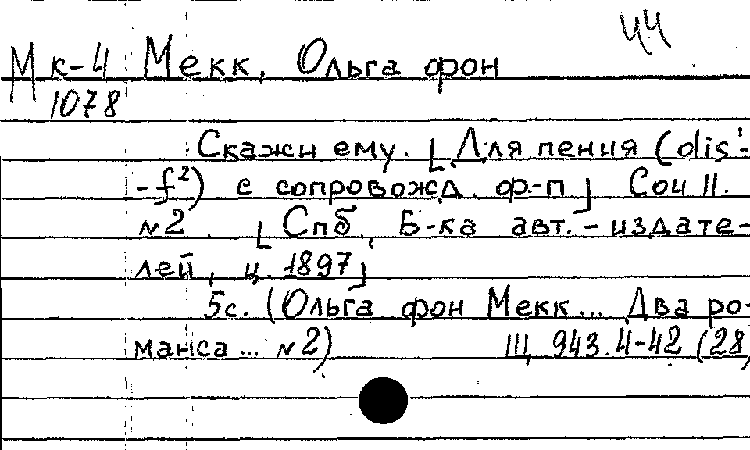 44
Мк-4 Мекк, Ольга фон
1078
Скажи ему. [Для пения (dis¹-
-f²) с сопровожд. ф-п] Соч 11.
№2. [Спб, Б-ка авт.-издате-
лей, ц. 1897]
5с. (Ольга фон Мекк... Два ро-
манса... №2) Щ 943.4-42 (28)